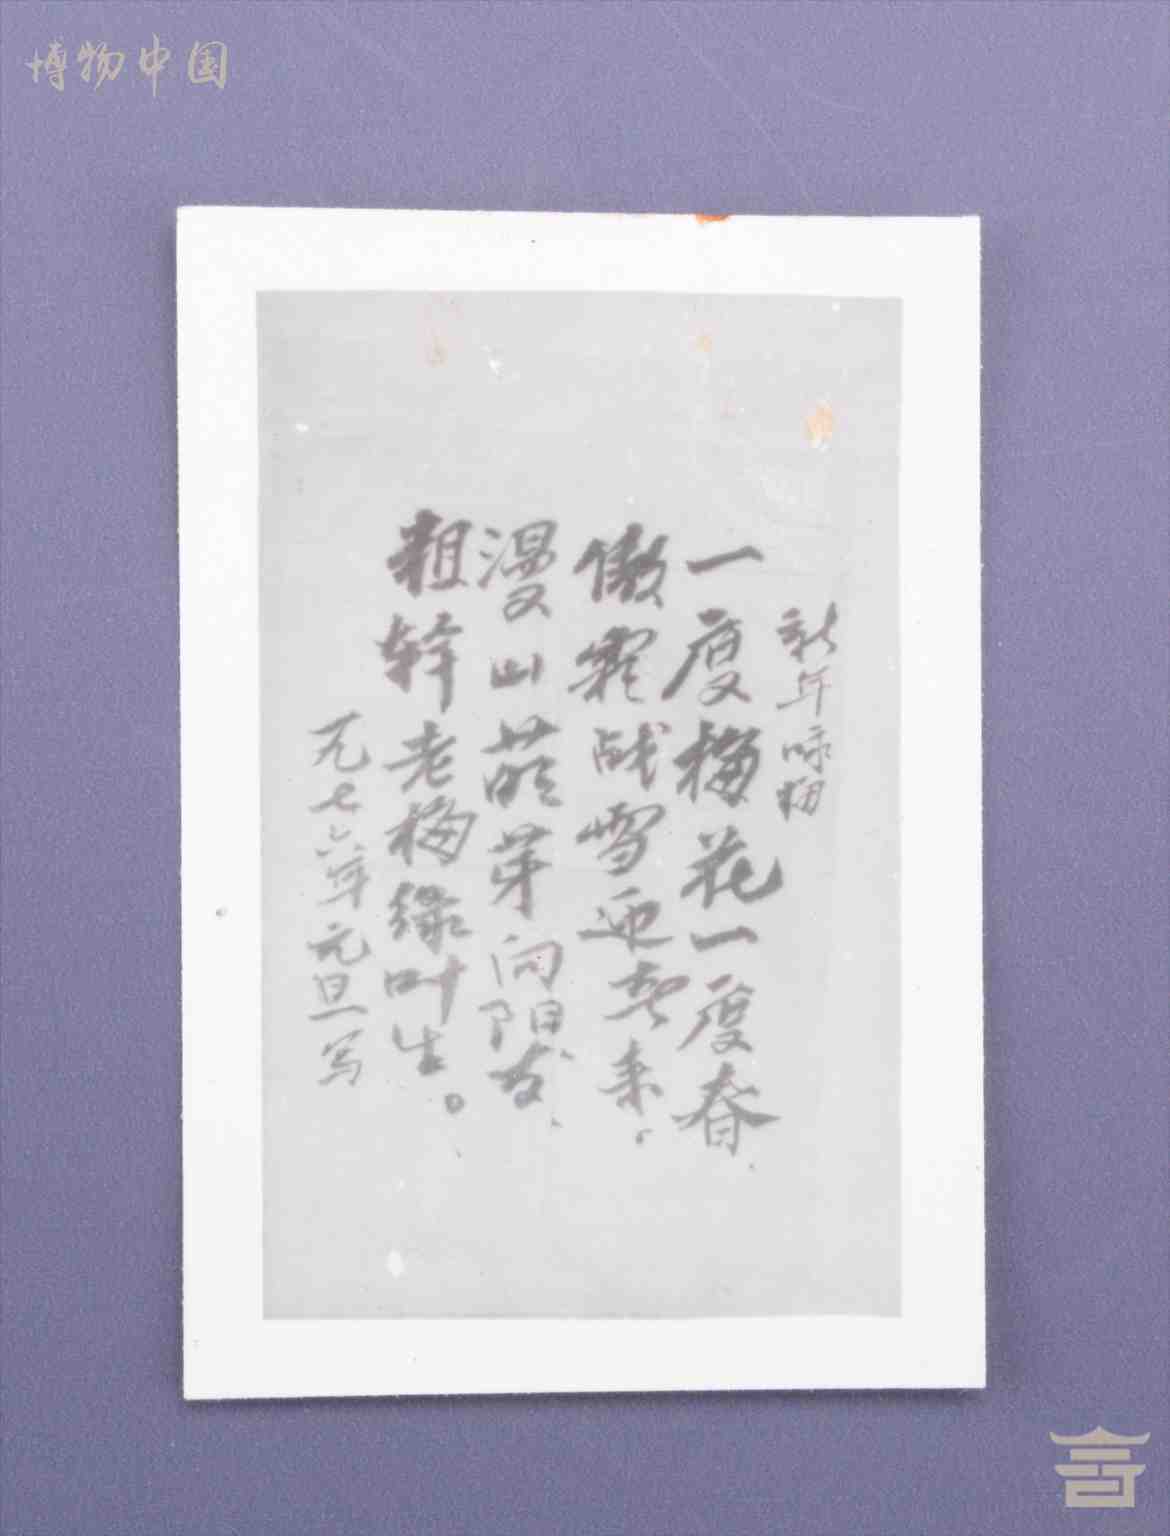 博物中国
新年咏梅
一度梅花一度春、
傲霜战雪迎春来。
漫山萌芽向阳发、
粗幹老梅绿叶生。
一九七六年元旦写